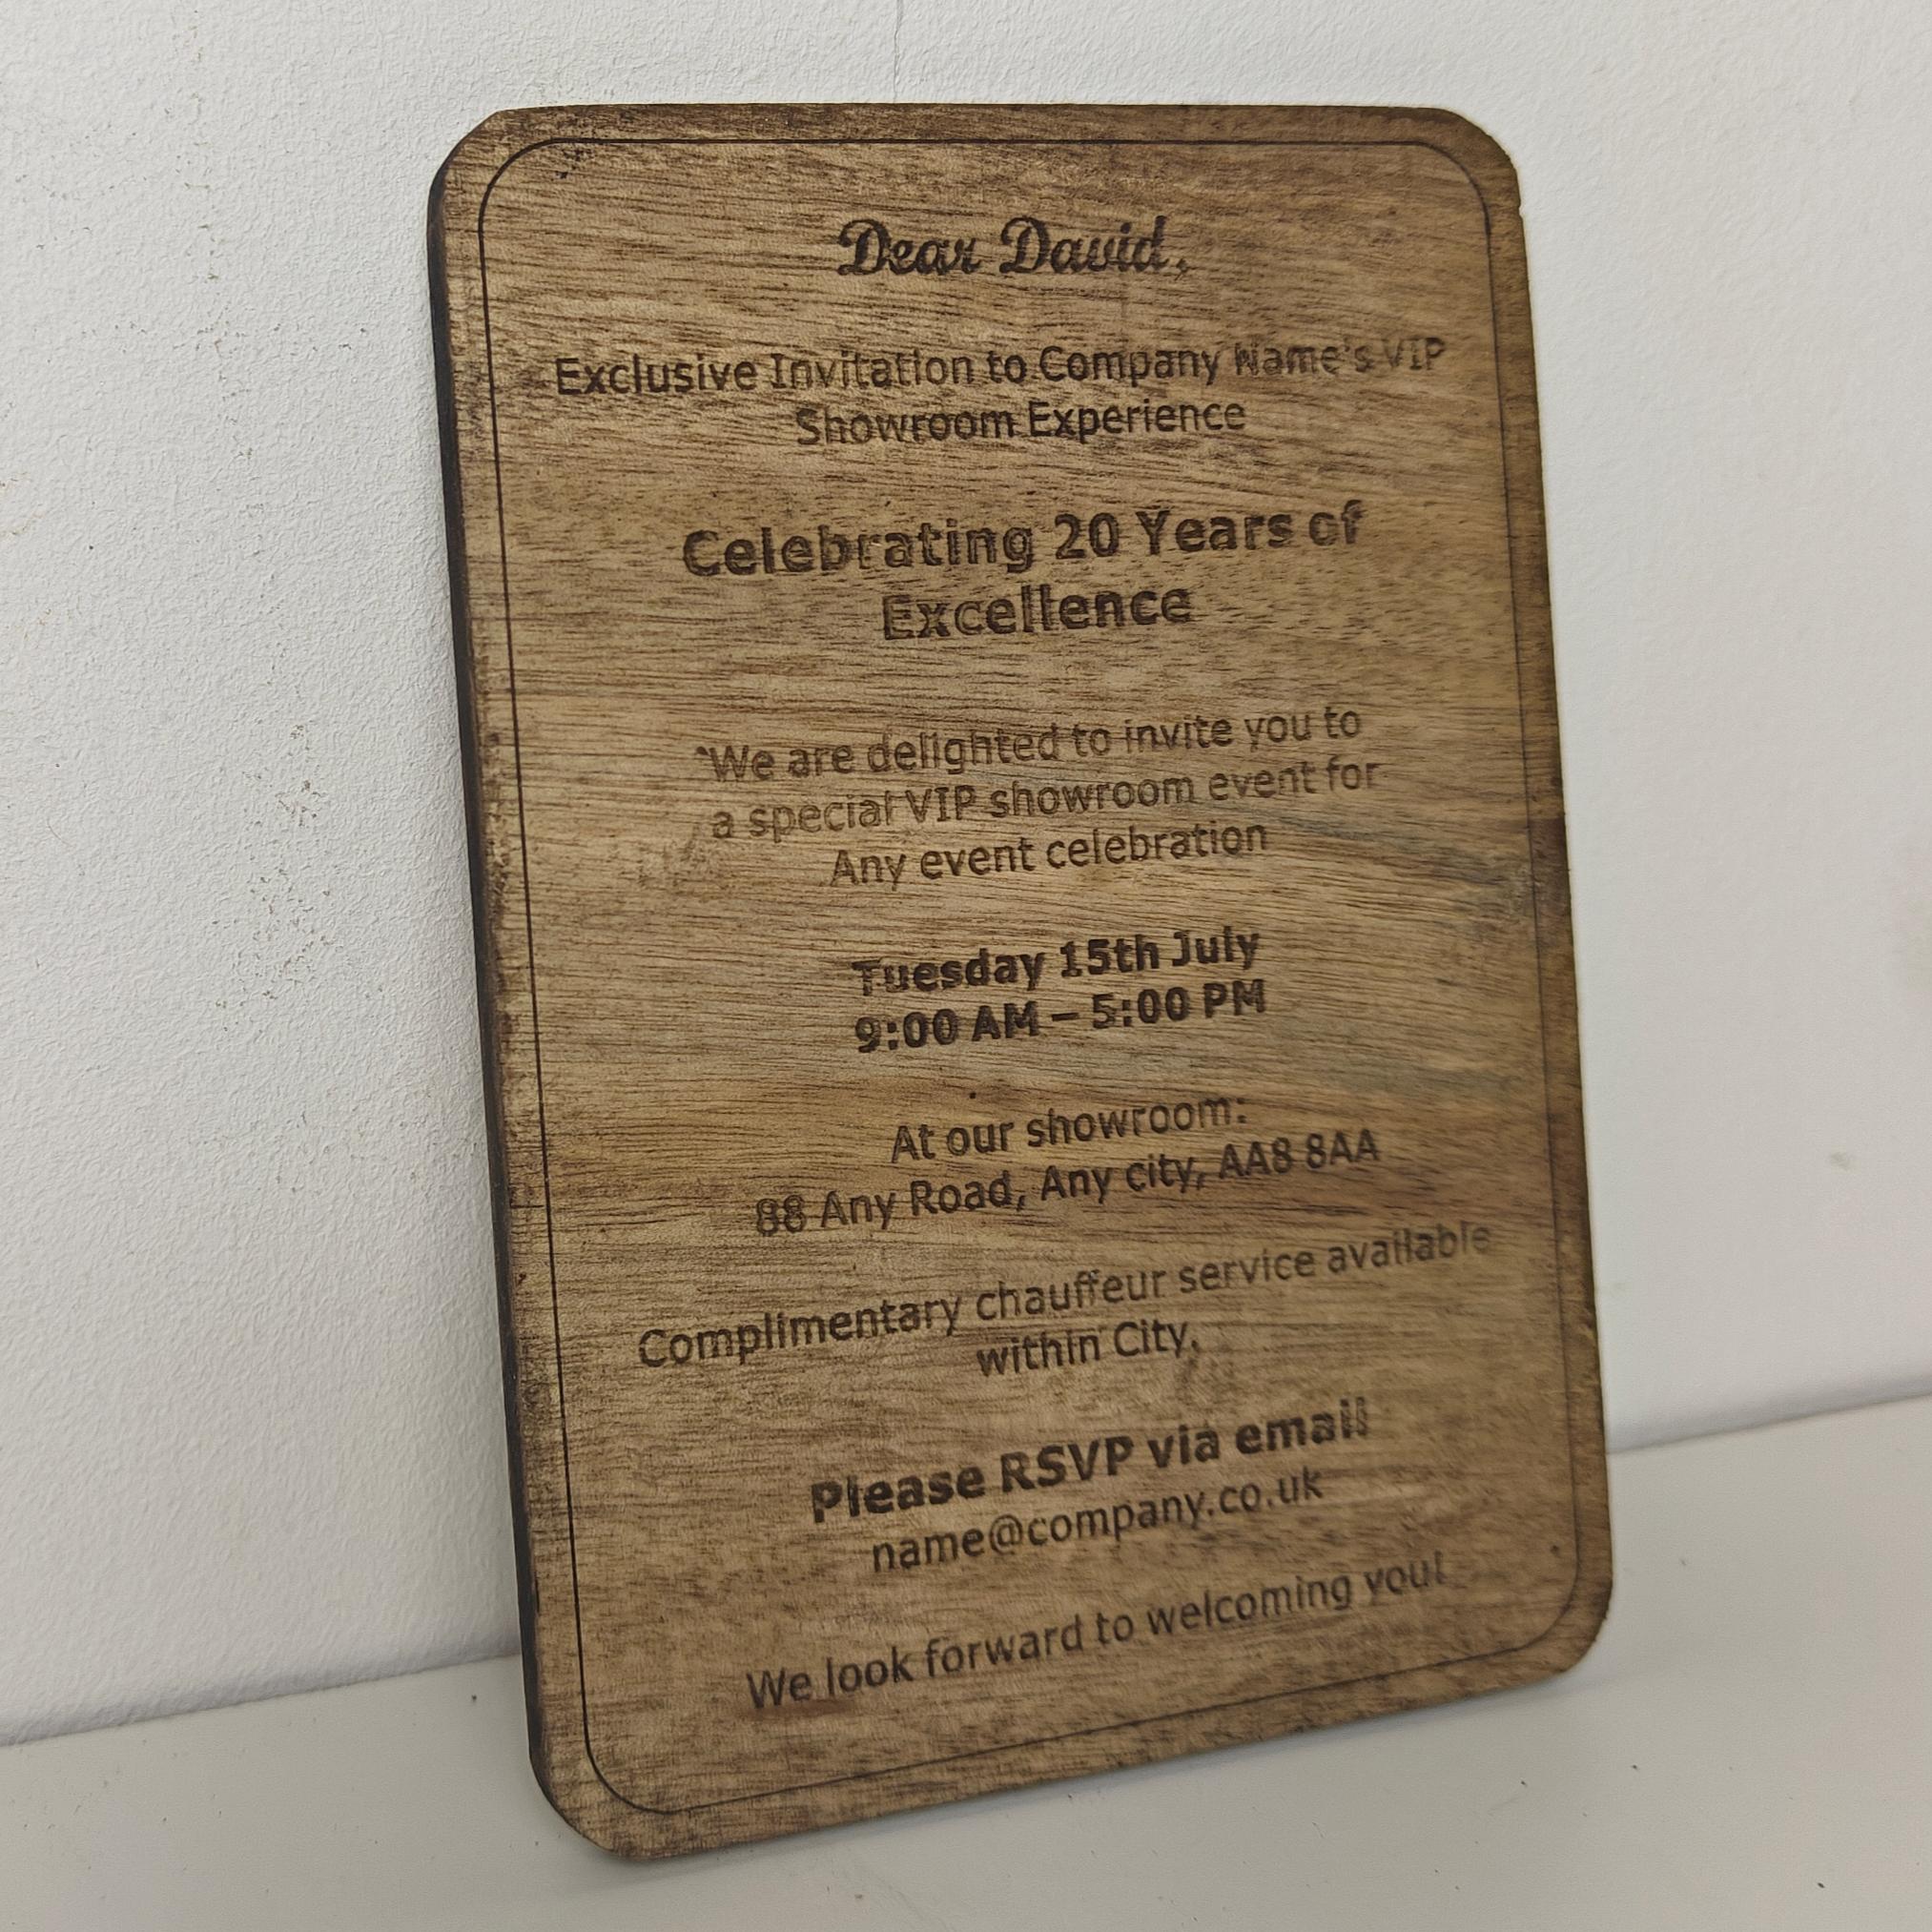 Dear David,
Exclusive Invitation to Company Name's VIP
Showroom Experience
Celebrating 20 Years of
Excellence
We are delighted to invite you to
a special VIP showroom event for
Any event celebration
Tuesday 15th July
9:00 AM – 5:00 PM
At our showroom:
88 Any Road, Any city, AA8 8AA
Complimentary chauffeur service available
within City.
Please RSVP via email
name@company.co.uk
We look forward to welcoming you!